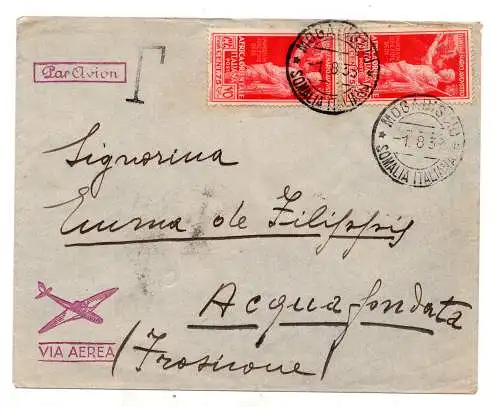 Par Avion
T
AFRICA ORIENTALE
ITALIANA
MOGADISCIO
SOMALIA ITALIANA
MOGADISCIO
-1.8.3
SOMALIA ITALIANA
Signorina
Emma de Filippis
Acquafondata
(Frosinone)
VIA AEREA